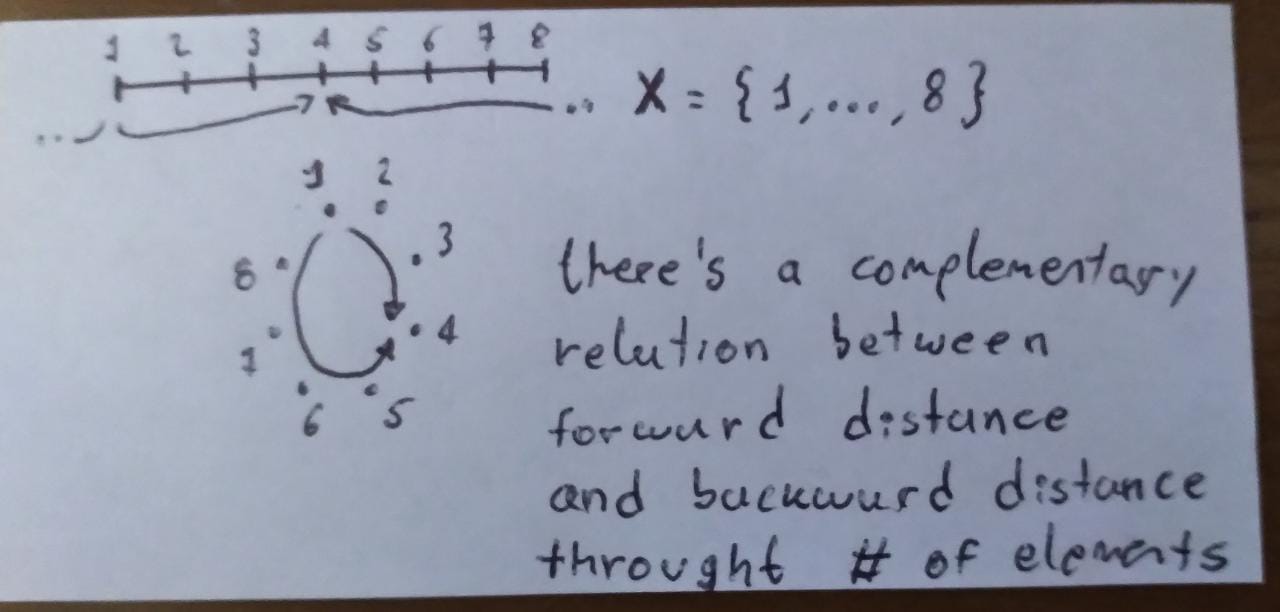 1 2 3 4 5 6 7 8
X = {1,...,8}
1 2
3
8
4
7
6 5
there's a complementary
relution between
forward distance
and backward distance
throught # of elements